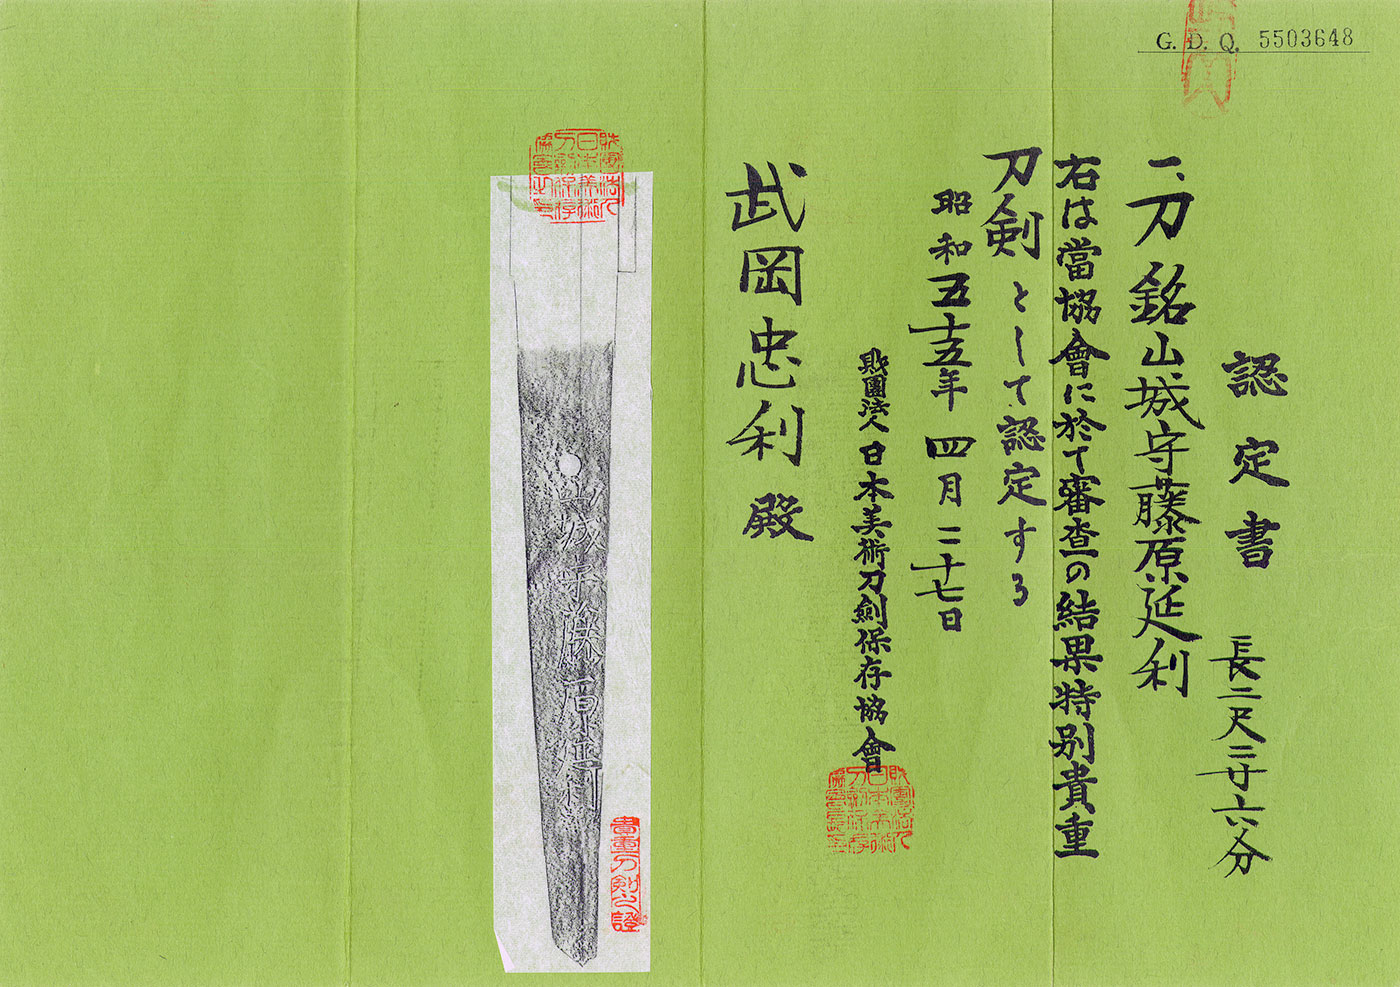 G. D. Q. 5503648
認定書
長二尺二寸六分
一、刀 銘山城守藤原延利
右は當協會に於て審査の結果特別貴重
刀剣として認定する
昭和五十五年四月二十七日
財團法人日本美術刀劍保存協會
武岡忠利殿
山城守藤原延利
貴重刀剣之證